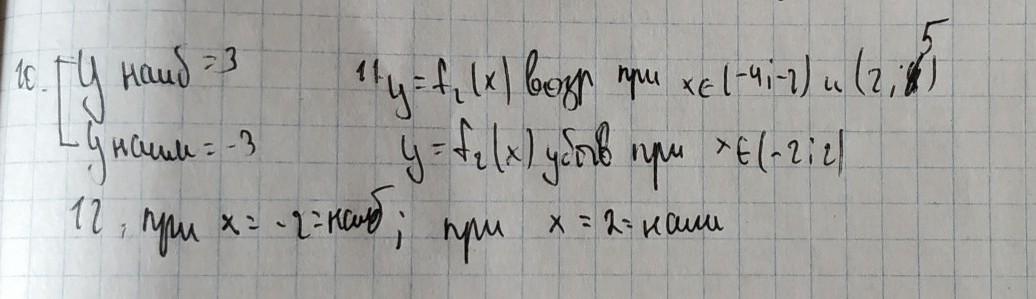 10. y наиб = 3
y наим = -3
11. y = f₂(x) возр при x∈(-4;-2) и (2;5)
y = f₂(x) убыв при x∈(-2;2)
12. при x = -2 = наиб; при x = 2 = наим